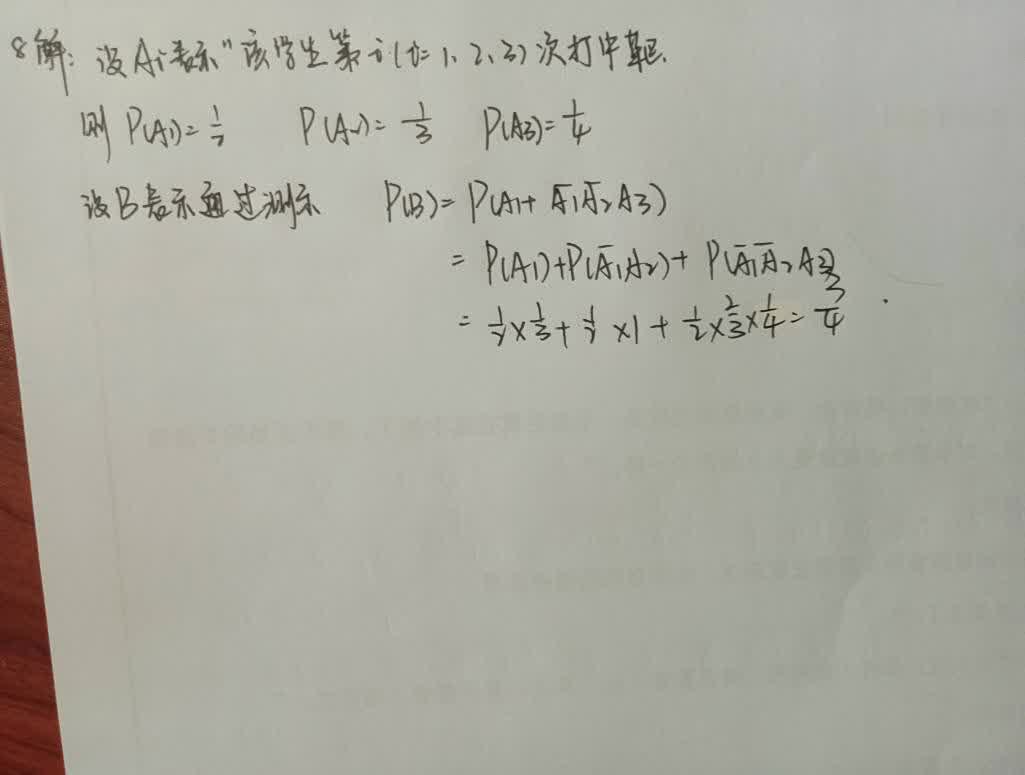 8解: 设Ai表示"该学生第i(i=1、2、3)次打中靶.
则 P(A1)=1/2 P(A2)=1/3 P(A3)=1/4
设B表示通过测示 P(B)=P(A1+A̅1A̅2A3)
=P(A1)+P(A̅1A2)+P(A̅1A̅2A3)
=1/2×1/3+1/2×1+1/2×2/3×1/4=3/4.